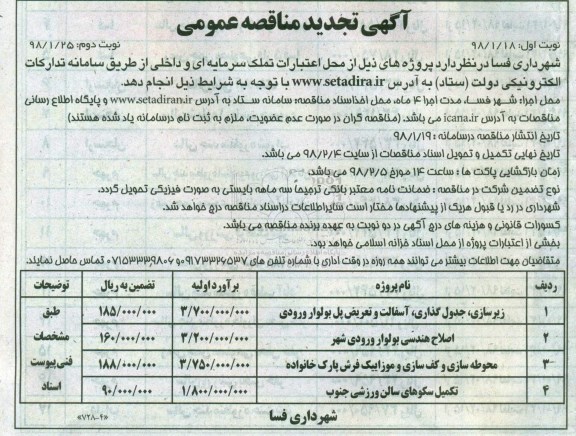 آگهی تجدید مناقصه عمومی
نوبت اول: ۹۸/۱/۱۸
نوبت دوم: ۹۸/۱/۲۵
شهرداری فسا در نظر دارد پروژه های ذیل از محل اعتبارات تملک سرمایه ای و داخلی از طریق سامانه تدارکات
الکترونیکی دولت (ستاد) به آدرس www.setadira.ir با توجه به شرایط ذیل انجام دهد.
محل اجرا: شهر فسا، مدت اجرا ۴ ماه، محل اخذ اسناد مناقصه: سامانه ستاد به آدرس www.setadiran.ir و پایگاه اطلاع رسانی
مناقصات به آدرس icana.ir می باشد. (مناقصه گران در صورت عدم عضویت، ملزم به ثبت نام در سامانه یاد شده هستند)
تاریخ انتشار مناقصه در سامانه: ۹۸/۱/۱۹
تاریخ نهایی تکمیل و تحویل اسناد مناقصات از سایت ۹۸/۲/۴ می باشد.
زمان بازگشایی پاکت ها: ساعت ۱۴ مورخ ۹۸/۲/۵ می باشد.
نوع تضمین شرکت در مناقصه: ضمانت نامه معتبر بانکی ترجیما سه ماهه بایستی به صورت فیزیکی تحویل گردد.
شهرداری در رد یا قبول هریک از پیشنهادها مختار است سایر اطلاعات در اسناد مناقصه درج خواهد شد.
کسورات قانونی و هزینه های درج آگهی در دو نوبت به عهده برنده مناقصه می باشد.
بخشی از اعتبارات پروژه از محل اسناد خزانه اسلامی خواهد بود.
متقاضیان جهت اطلاعات بیشتر می توانند همه روزه در وقت اداری با شماره تلفن های ۰۹۱۷۳۳۲۶۵۳۷ و ۰۷۱۵۳۳۳۹۸۰۶ تماس حاصل نمایند.
ردیف نام پروژه برآورد اولیه تضمین به ریال توضیحات
۱ زیرسازی، جدول گذاری، آسفالت و تعریض پل بولوار ورودی ۳/۷۰۰/۰۰۰/۰۰۰ ۱۸۵/۰۰۰/۰۰۰ طبق
۲ اصلاح هندسی بولوار ورودی شهر ۳/۲۰۰/۰۰۰/۰۰۰ ۱۶۰/۰۰۰/۰۰۰ مشخصات
۳ محوطه سازی و کف سازی و موزاییک فرش پارک خانواده ۳/۷۵۰/۰۰۰/۰۰۰ ۱۸۸/۰۰۰/۰۰۰ فنی پیوست
۴ تکمیل سکوهای سالن ورزشی جنوب ۱/۸۰۰/۰۰۰/۰۰۰ ۹۰/۰۰۰/۰۰۰ اسناد
شهرداری فسا
«۷۲۸-۴»